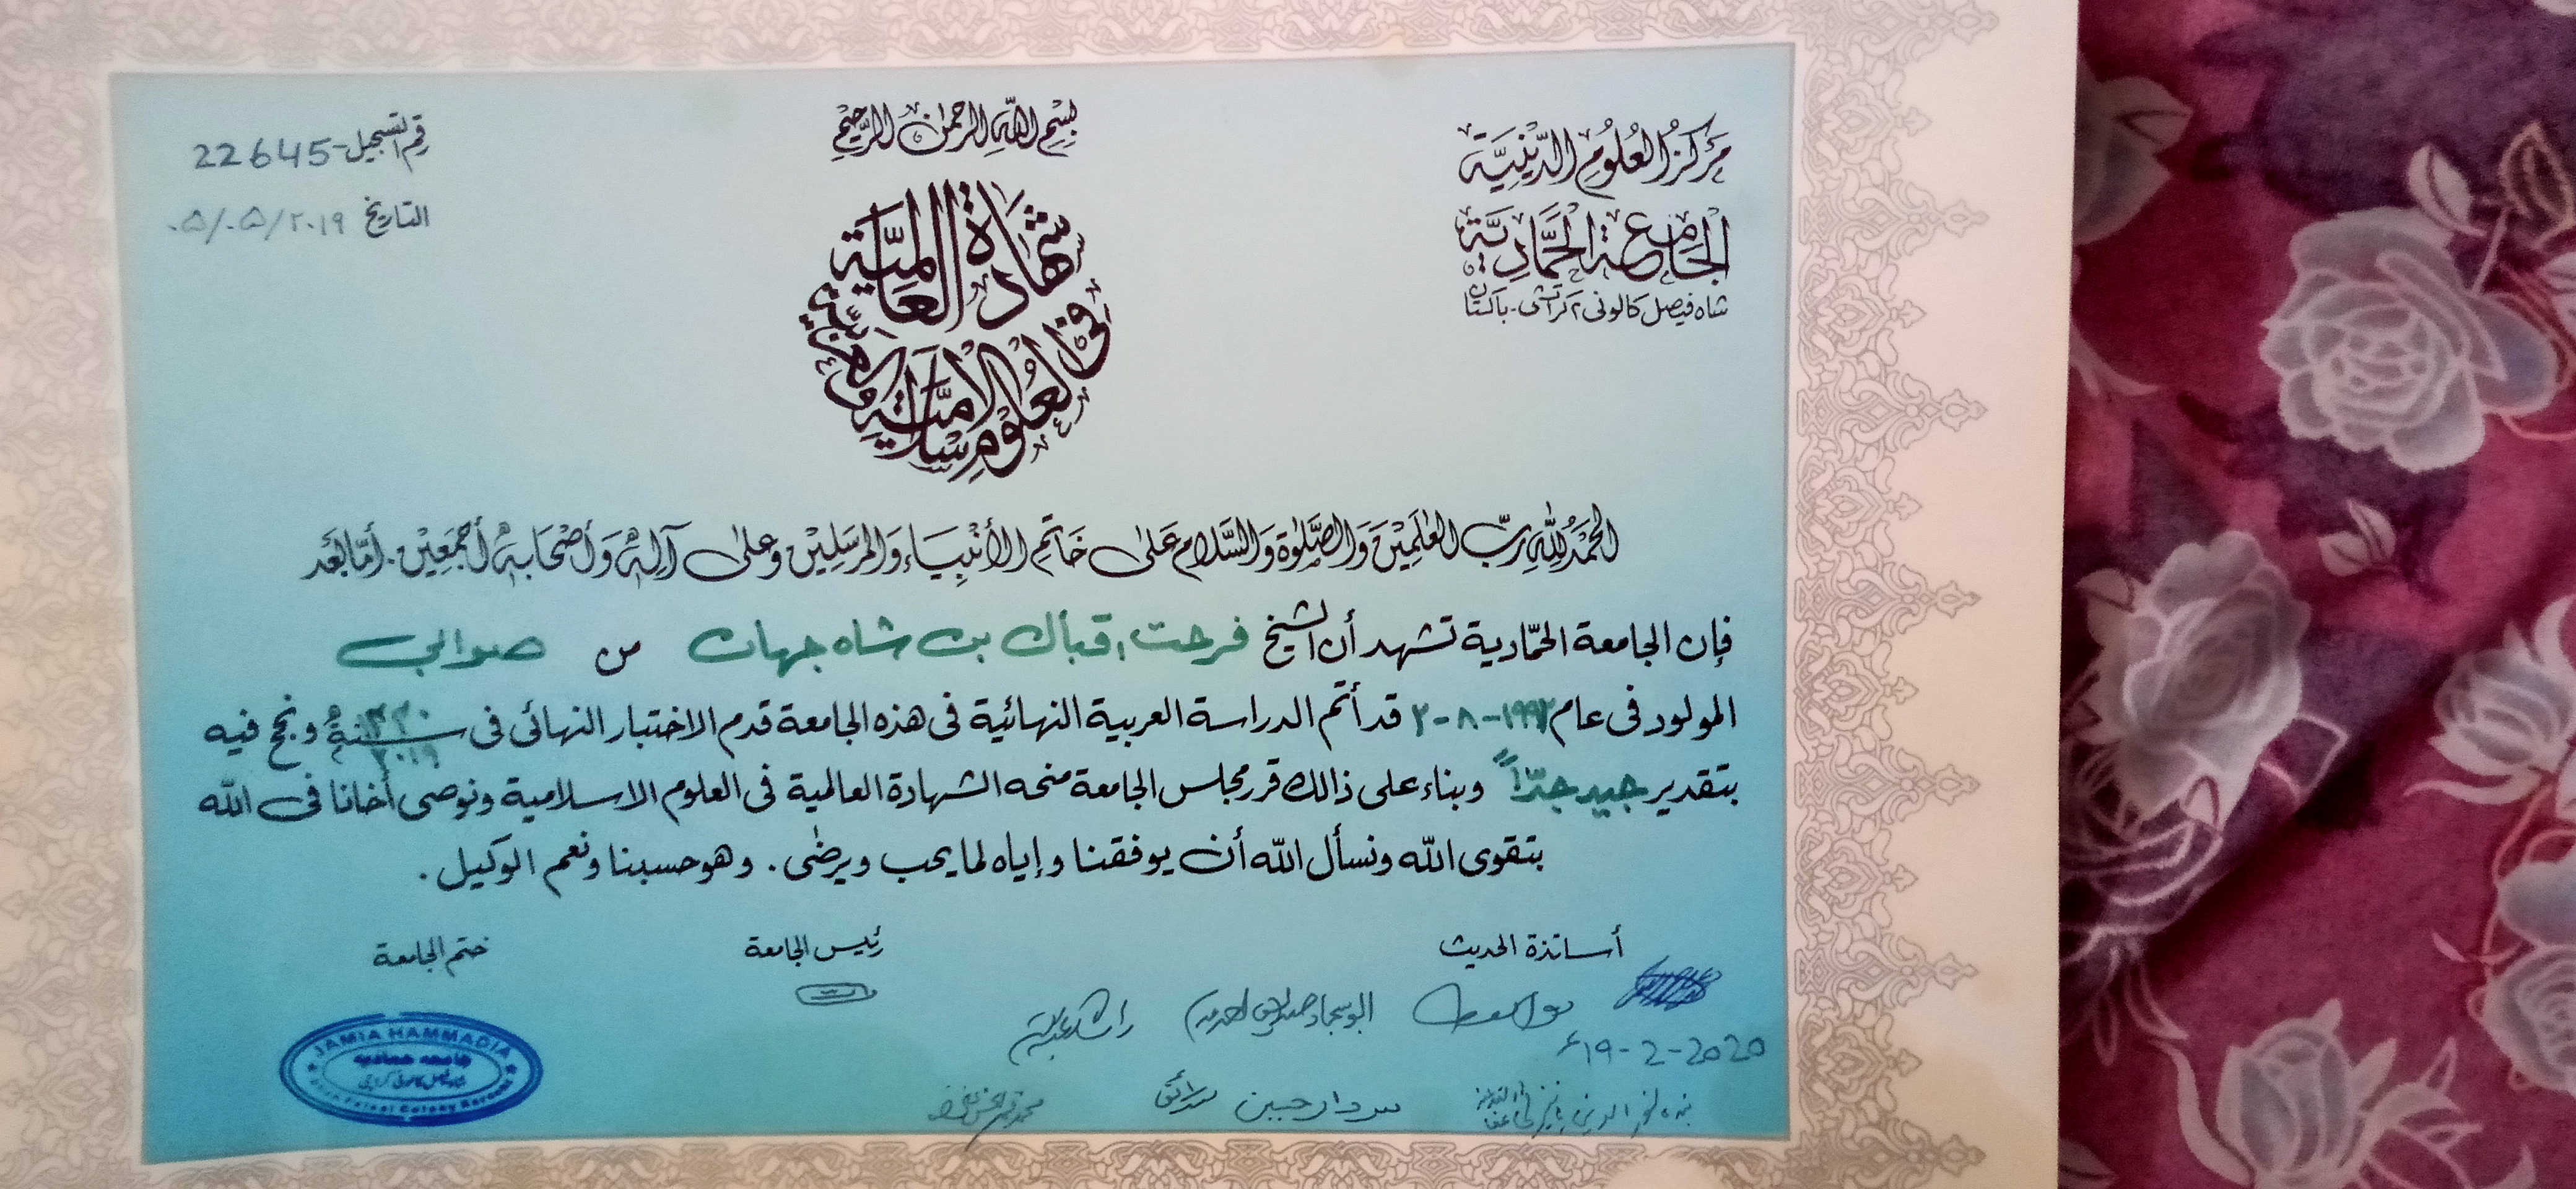 بِسْمِ اللهِ الرَّحْمٰنِ الرَّحِيْمِ
مَرْكَزُ الْعُلُوْمِ الدِّيْنِيَّةِ
الْجَامِعَةُ الْحَمَّادِيَّةُ
شاه فيصل كالونى ٢ كراتشى - باكستان
رقم التسجيل - 22645
التاريخ ٠۵/٠۵/٢٠١٩
شَهَادَةُ الْعَالَمِيَّةِ
فِى الْعُلُوْمِ الْإِسْلَامِيَّةِ وَالْعَرَبِيَّةِ
الْحَمْدُ لِلّٰهِ رَبِّ الْعٰلَمِيْنَ وَالصَّلٰوةُ وَالسَّلَام عَلىٰ خَاتَمِ الْأَنْبِيَاءِ وَالْمُرْسَلِيْنَ وَعَلىٰ آلِهٖ وَأَصْحَابِهٖ أَجْمَعِيْنَ. أَمَّا بَعْد
فإن الجامعة الحمّادية تشهد أن الشيخ فرحت اقبال بن شاه جهان من صوابى
المولود فى عام ٢-٨-١٩٩٢ قد أتم الدراسة العربية النهائية فى هذه الجامعة قدم الاختبار النهائى فى سنة ٢٠١٩ ونجح فيه
بتقدير جيد جدّاً وبناء على ذالك قرر مجلس الجامعة منحه الشهادة العالمية فى العلوم الاسلامية ونوصى أخانا فى الله
بتقوى الله ونسأل الله أن يوفقنا وإياه لما يحب ويرضٰى. وهو حسبنا ونعم الوكيل.
أساتذة الحديث
رئيس الجامعة
ختم الجامعة
19-2-2020ء
سردار حسين
JAMIA HAMMADIA
جامعه حماديه
Shah Faisal Colony Karachi